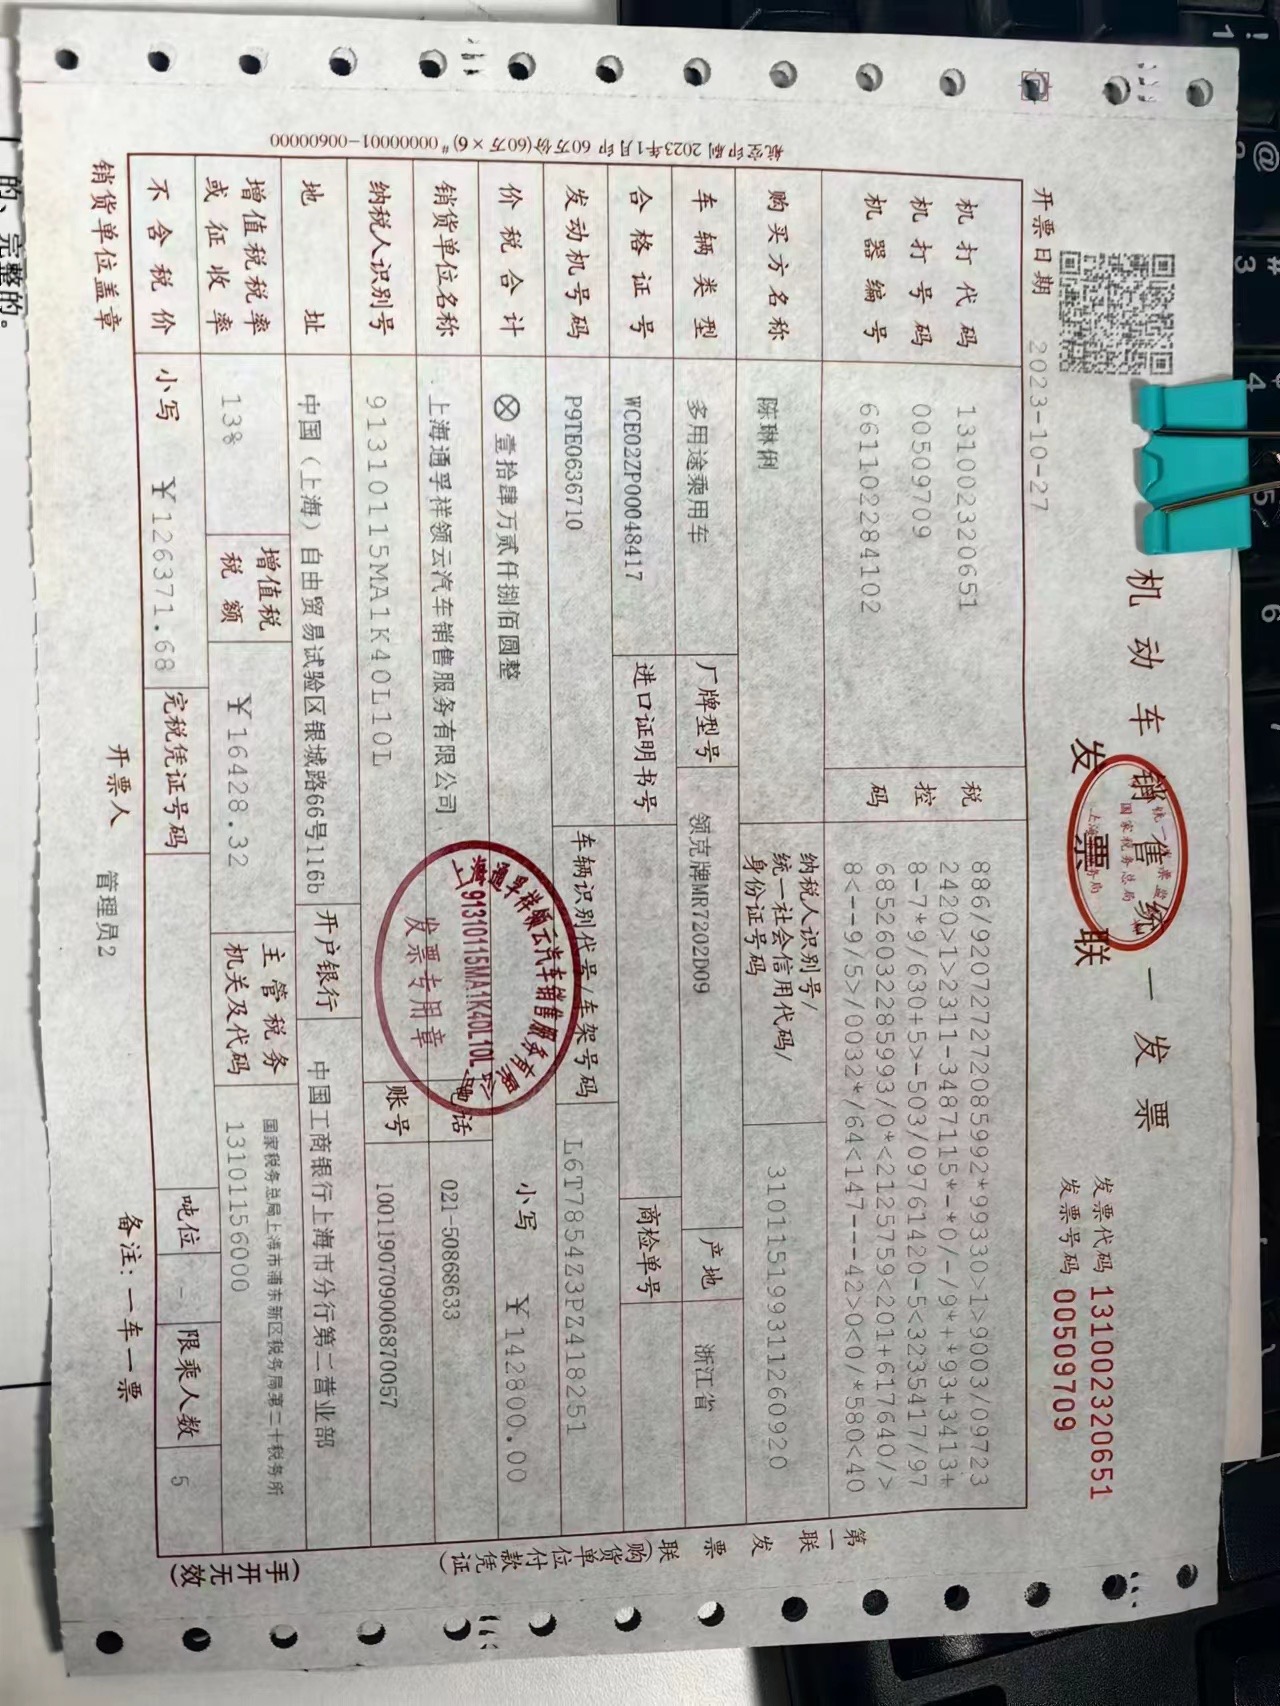 机动车销售统一发票
发票联
发票代码 131002320651
发票号码 00509709
开票日期 2023-10-27
机打代码 131002320651
机打号码 00509709
机器编号 661102284102
税控码
886/9207272720859​92*99330>1>9003/09723
2420>1>2311-3487115*-*0/-/9*+93+3413+
8-7*9/630+5>-503/09761420-5<3235417/97
6852603228599​3/0*<2125759<201+617640/>
8<--9/5>/0032*/64<147---42>0<0/*580<40
购买方名称 陈琳俐
纳税人识别号/
统一社会信用代码/
身份证号码
310115199311260920
车辆类型 多用途乘用车 厂牌型号 领克牌MR7202D09 产地 浙江省
合格证号 WCE02ZP00048417 进口证明书号 商检单号
发动机号码 P9TE0636710 车辆识别代号/车架号码 L6T7854Z3PZ418251
价税合计 ⊗ 壹拾肆万贰仟捌佰圆整 小写 ¥142800.00
销货单位名称 上海通孚祥领云汽车销售服务有限公司 电话 021-50868633
纳税人识别号 91310115MA1K40L10L 账号 1001190709006870057
地址 中国（上海）自由贸易试验区银城路66号116b 开户银行 中国工商银行上海市分行第二营业部
增值税税率
或征收率
13%
增值税
税额
¥16428.32
主管税务
机关及代码
国家税务总局上海市浦东新区税务局第二十税务所
13101156000
不含税价 小写 ¥126371.68 完税凭证号码 吨位 - 限乘人数 5
销货单位盖章 开票人 管理员2 备注：一车一票
第一联 发票联（购货单位付款凭证）
（手开无效）
航空印刷 2023年1月印 60万份(60万×6) # 00000001-00600000
上海通孚祥领云汽车销售服务有限公司
91310115MA1K40L10L
发票专用章
国家税务总局
的、完整的。